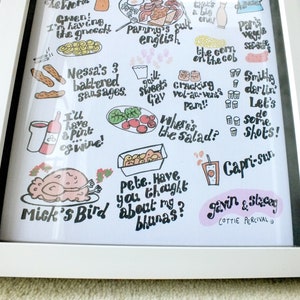 Gwen! I'm
having
the gnocchi!
Pammy's full
english
a big
one!
Pam's
veggie
Nessa's 3
battered
sausages
I'll
get
sweets
Gav
cracking
vol-au-vents
Pam!!
the corn
on the cob
Smithy
darlin'
Let's
do
some
shots!
I'll
have
a pint...
of wine!
Where's
the salad?
Mick's Bird
Pete. Have
you thought
about my
bhunas?
Capri-sun
gavin & stacey
LOTTIE PERCIVAL